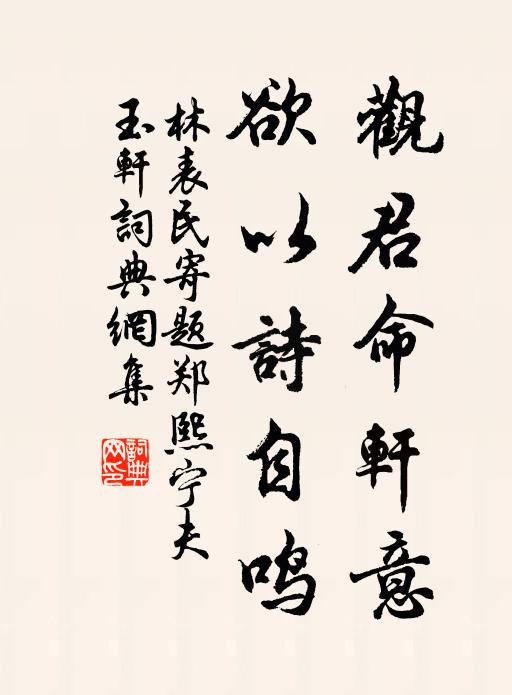 觀君命軒意
欲以詩自鳴
林表民寄题郑熙宁夫
玉軒詞典網集
詞典網印